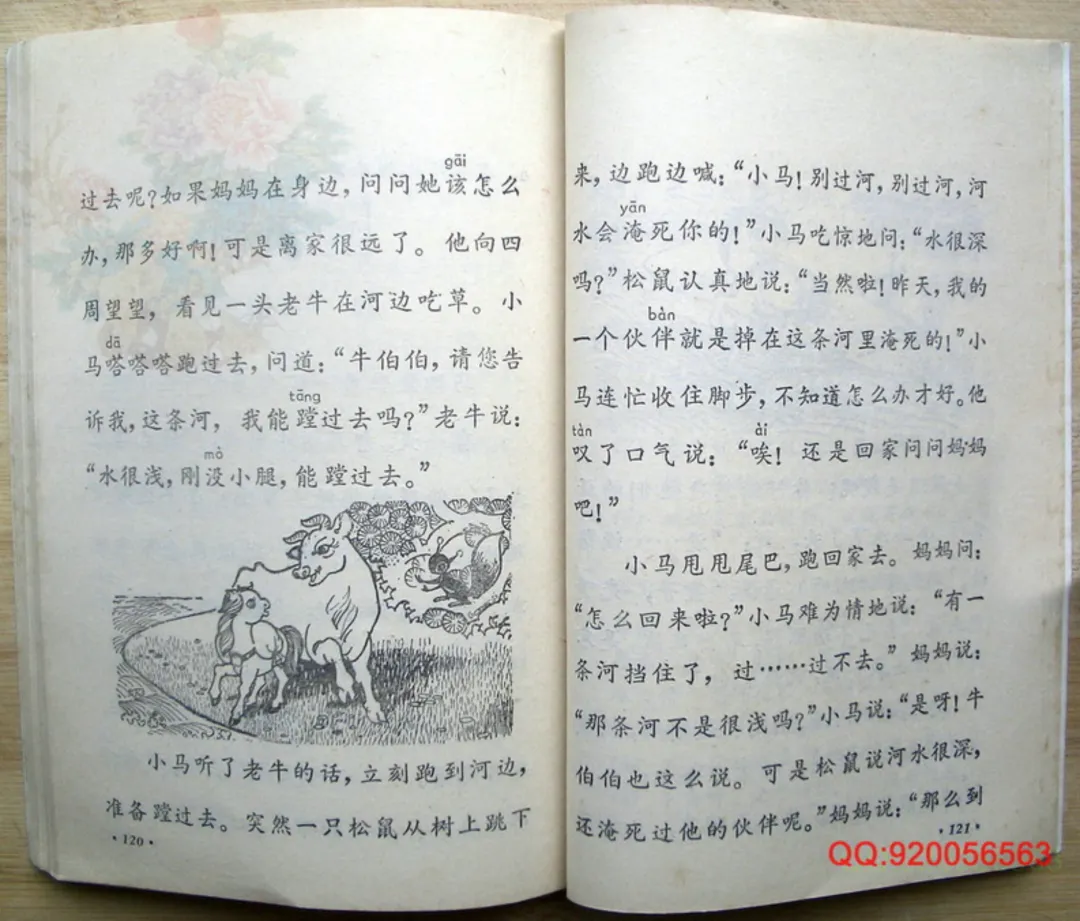 gāi
过去呢?如果妈妈在身边,问问她该怎么
办,那多好啊!可是离家很远了。他向四
周望望,看见一头老牛在河边吃草。小
dā
马嗒嗒嗒跑过去,问道:“牛伯伯,请您告
tāng
诉我,这条河,我能蹚过去吗?”老牛说:
mò
“水很浅,刚没小腿,能蹚过去。”
小马听了老牛的话,立刻跑到河边,
准备蹚过去。突然一只松鼠从树上跳下
·120·
来,边跑边喊:“小马!别过河,别过河,河
yān
水会淹死你的!”小马吃惊地问:“水很深
吗?”松鼠认真地说:“当然啦!昨天,我的
bàn
一个伙伴就是掉在这条河里淹死的!”小
马连忙收住脚步,不知道怎么办才好。他
tàn ài
叹了口气说:“唉!还是回家问问妈妈
吧!”
小马甩甩尾巴,跑回家去。妈妈问:
“怎么回来啦?”小马难为情地说:“有一
条河挡住了,过……过不去。”妈妈说:
“那条河不是很浅吗?”小马说:“是呀!牛
伯伯也这么说。可是松鼠说河水很深,
还淹死过他的伙伴呢。”妈妈说:“那么到
·121·
QQ:920056563